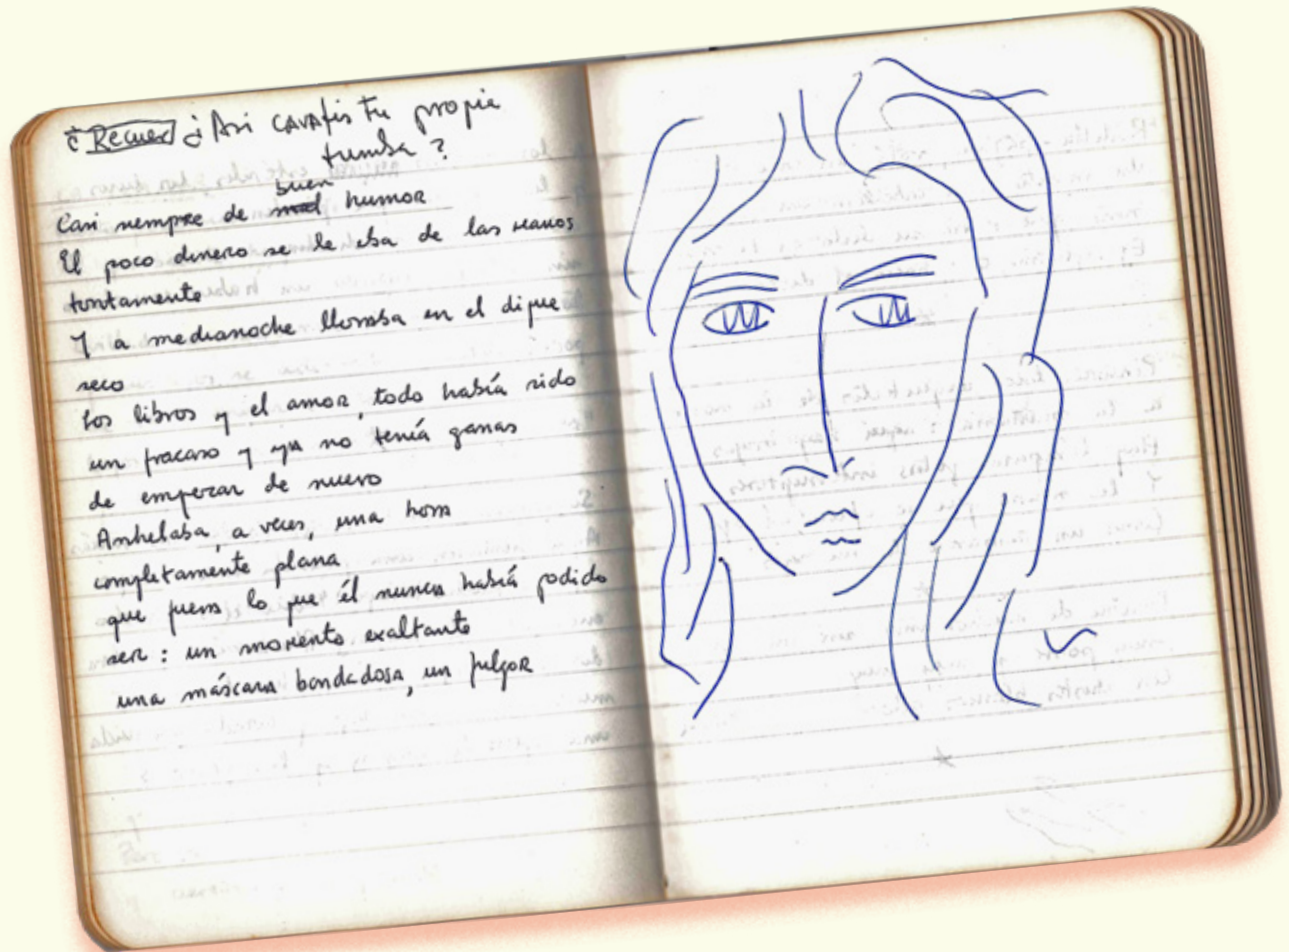 ¿ Recuer ¿Asi cavasteis tu propia
tumba?
buen
Casi siempre de mal humor
El poco dinero se le iba de las manos
tontamente
Y a medianoche lloraba en el dique
seco
Los libros y el amor, todo había sido
un fracaso y ya no tenía ganas
de empezar de nuevo
Anhelaba, a veces, una hora
completamente plana
que fuera lo que él nunca había podido
ser: un momento exaltante
una máscara bondadosa, un fulgor